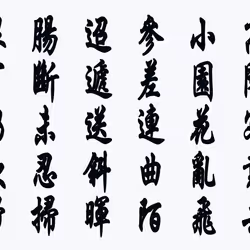 小園花亂飛
參差連曲陌
迢遞送斜暉
腸斷未忍掃